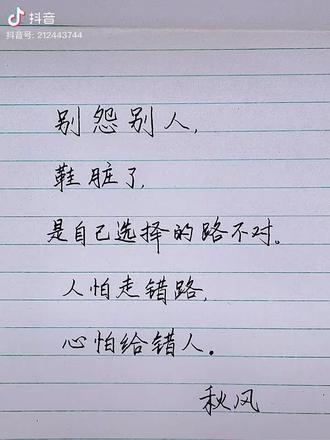 抖音
抖音号: 212443744
别怨别人,
鞋脏了,
是自己选择的路不对。
人怕走错路,
心怕给错人。
秋风